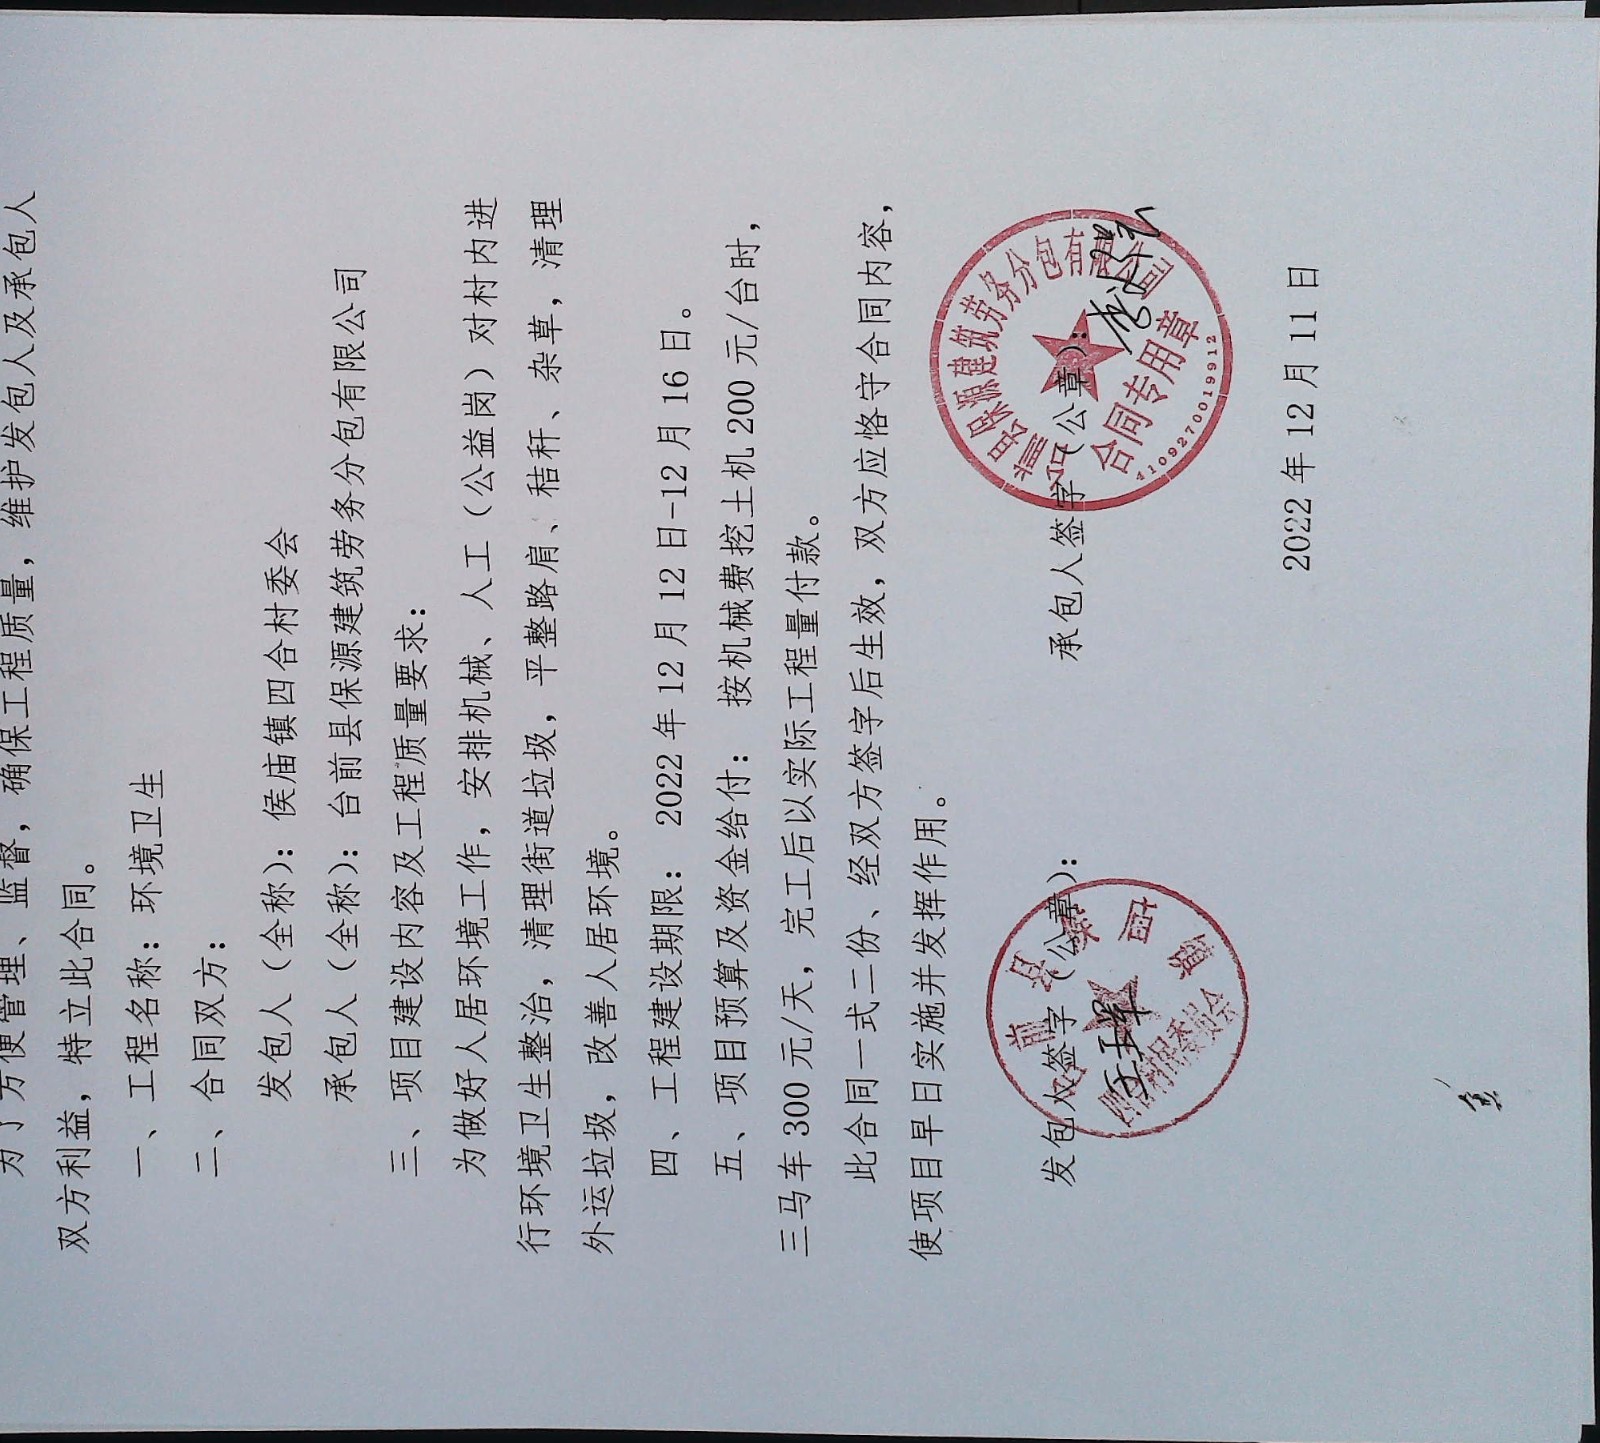 为了方便管理、监督，确保工程质量，维护发包人及承包人
双方利益，特立此合同。
一、工程名称：环境卫生
二、合同双方：
发包人（全称）：侯庙镇四合村委会
承包人（全称）：台前县保源建筑劳务分包有限公司
三、项目建设内容及工程质量要求：
为做好人居环境工作，安排机械、人工（公益岗）对村内进
行环境卫生整治，清理街道垃圾，平整路肩、秸秆、杂草，清理
外运垃圾，改善人居环境。
四、工程建设期限： 2022 年 12 月 12 日-12 月 16 日。
五、项目预算及资金给付： 按机械费挖土机 200 元/台时，
三马车 300 元/天，完工后以实际工程量付款。
此合同一式二份、经双方签字后生效，双方应恪守合同内容，
使项目早日实施并发挥作用。
发包人签字（公章）：
承包人签字（公章）：
台前县保源建筑劳务分包有限公司
合同专用章
4109270019912
2022 年 12 月 11 日